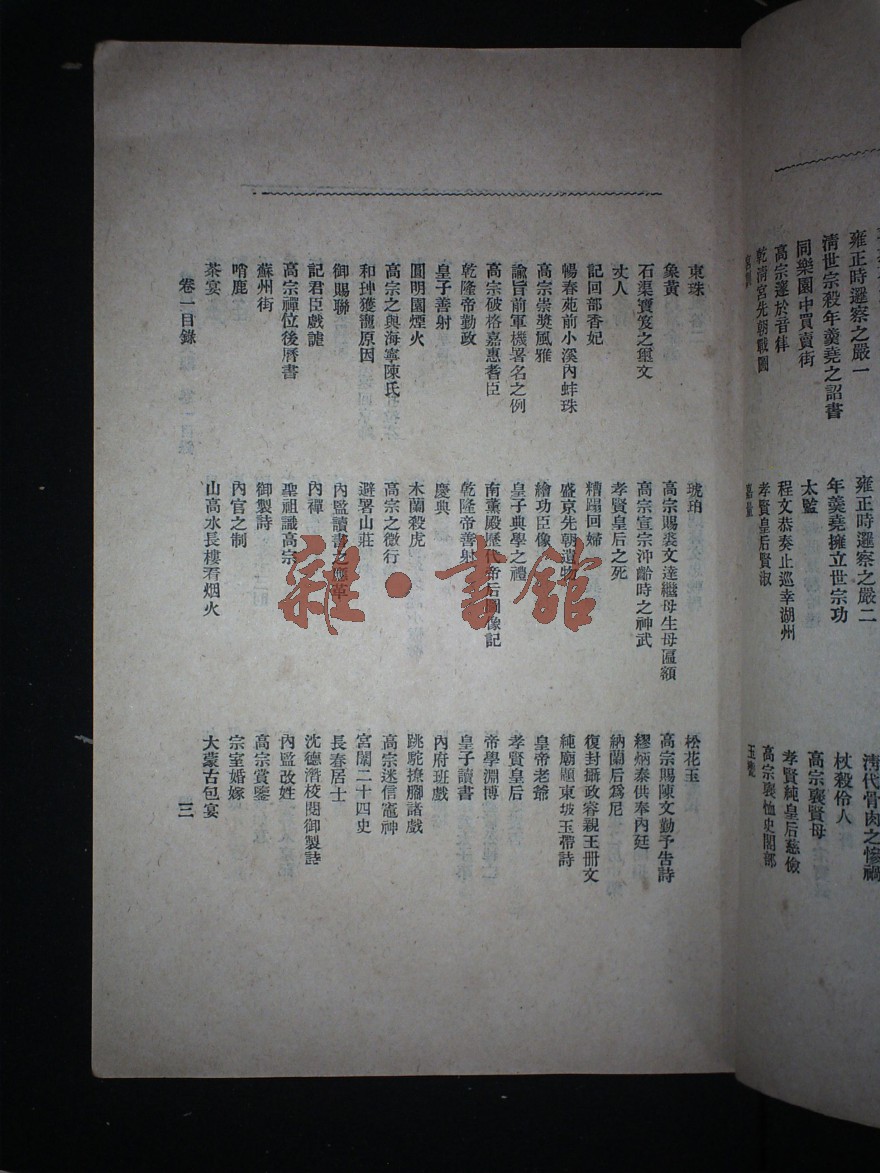 雍正時邏察之嚴一　雍正時邏察之嚴二　清代骨肉之慘禍
清世宗殺年羹堯之詔書　年羹堯擁立世宗功　杖殺伶人
同樂園中買賣街　太監　高宗襃賢母
高宗邃於音律　程文恭奏止巡幸湖州　孝賢純皇后慈儉
乾清宮先朝戰圖　孝賢皇后賢淑　高宗襃恤史閣部
嘉量　玉甕
東珠　琥珀　松花玉
象黃　高宗賜裘文達繼母生母匾額　高宗賜陳文勤予告詩
石渠寶笈之璽文　高宗宣宗沖齡時之神武　繆炳泰供奉內廷
丈人　孝賢皇后之死　納蘭后爲尼
記回部香妃　糟蹋回婦　復封攝政睿親王冊文
暢春苑前小溪內蚌珠　盛京先朝遺物　純廟題東坡玉帶詩
高宗崇獎風雅　繪功臣像　皇帝老爺
諭旨前軍機署名之例　皇子典學之禮　孝賢皇后
高宗破格嘉惠耆臣　南薰殿歷代帝后圖像記　帝學淵博
乾隆帝勤政　乾隆帝善射　皇子讀書
皇子善射　慶典　內府班戲
圓明園煙火　木蘭殺虎　跳駝撩腳諸戲
高宗之與海寧陳氏　高宗之微行　高宗迷信竈神
和珅獲寵原因　避暑山莊　宮闈二十四史
御賜聯　內監讀書之應革　長春居士
記君臣戲謔　內禪　沈德潛校閱御製詩
高宗禪位後曆書　聖祖識高宗　內監改姓
蘇州街　御製詩　高宗賞鑒
哨鹿　內官之制　宗室婚嫁
茶宴　山高水長樓看烟火　大蒙古包宴
卷一目錄　三
雜·書館